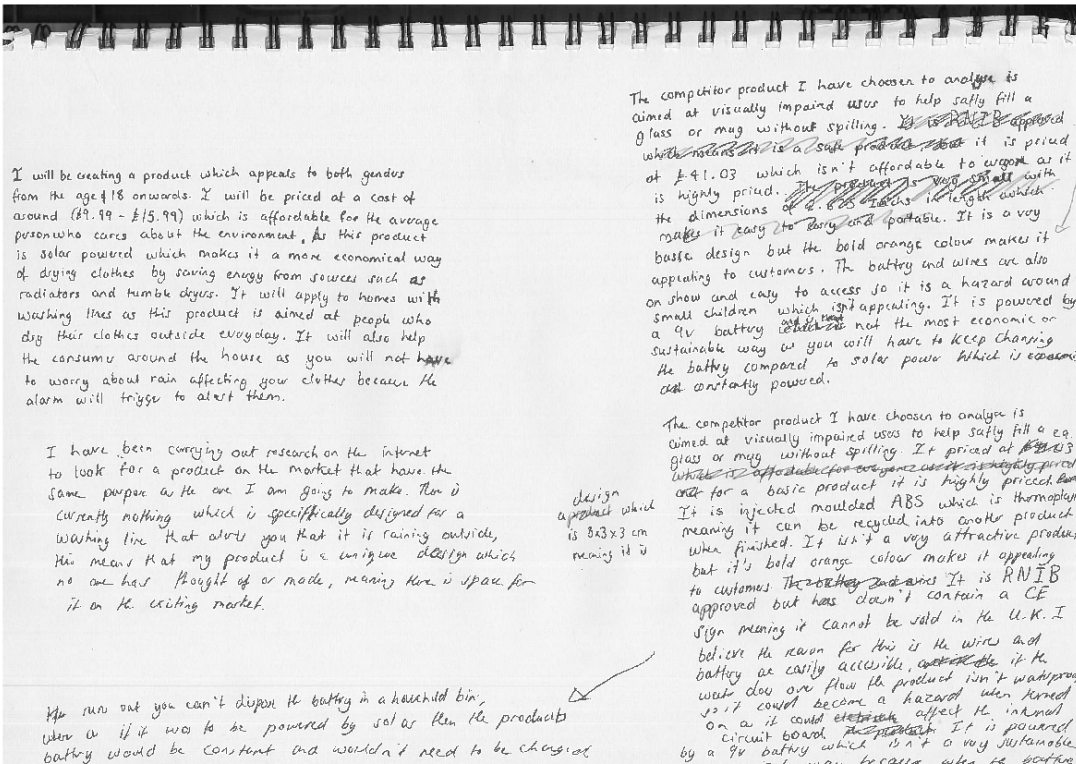 I will be creating a product which appeals to both genders
from the age of 18 onwards. I will be priced at a cost of
around (£9.99 - £15.99) which is affordable for the average
person who cares about the environment. As this product
is solar powered which makes it a more economical way
of drying clothes by saving energy from sources such as
radiators and tumble dryers. It will apply to homes with
washing lines as this product is aimed at people who
dry their clothes outside everyday. It will also help
the consumer around the house as you will not have
to worry about rain affecting your clothes because the
alarm will trigger to alert them.
I have been carrying out research on the internet
to look for a product on the market that have the
same purpose as the one I am going to make. There is
currently nothing which is specifically designed for a
washing line that alerts you that it is raining outside,
this means that my product is a unique design which
no one has thought of or made, meaning there is space for
it on the existing market.
design
a product which
is 8x3x3 cm
meaning it is
run out you can't dispose the battery in a household bin,
where as if it was to be powered by solar then the products
battery would be constant and wouldn't need to be changed
The competitor product I have choosen to analyse is
aimed at visually impaired users to help safly fill a
glass or mug without spilling. It is RNIB approved
which means it is a safe product it is priced
at £41.03 which isn't affordable to as it
is highly priced. The product is very small with
the dimensions of inchs in length which
makes it easy to carry and portable. It is a very
basic design but the bold orange colour makes it
appealing to customers. The battery and wires are also
on show and easy to access so it is a hazard around
small children which isn't appealing. It is powered by
a 9v battery and is not the most economic or
sustainable way as you will have to keep changing
the battery compared to solar power which is
constantly powered.
The competitor product I have choosen to analyse is
aimed at visually impaired users to help safly fill a eg.
glass or mug without spilling. It priced at
which is affordable for everyone as it is highly priced
and for a basic product it is highly priced.
It is injected moulded ABS which is thermoplas
meaning it can be recycled into another product
when finished. It isn't a very attractive product
but it's bold orange colour makes it appealing
to customers. The battery and wires It is RNIB
approved but has doesn't contain a CE
sign meaning it cannot be sold in the U.K. I
believe the reason for this is the wires and
battery are easily accessible, if the
water does over flow the product isn't waterproof
so it could become a hazard when turned
on a it could affect the internal
circuit board the product. It is powered
by a 9v battery which isn't a very sustainable
way because when the battery